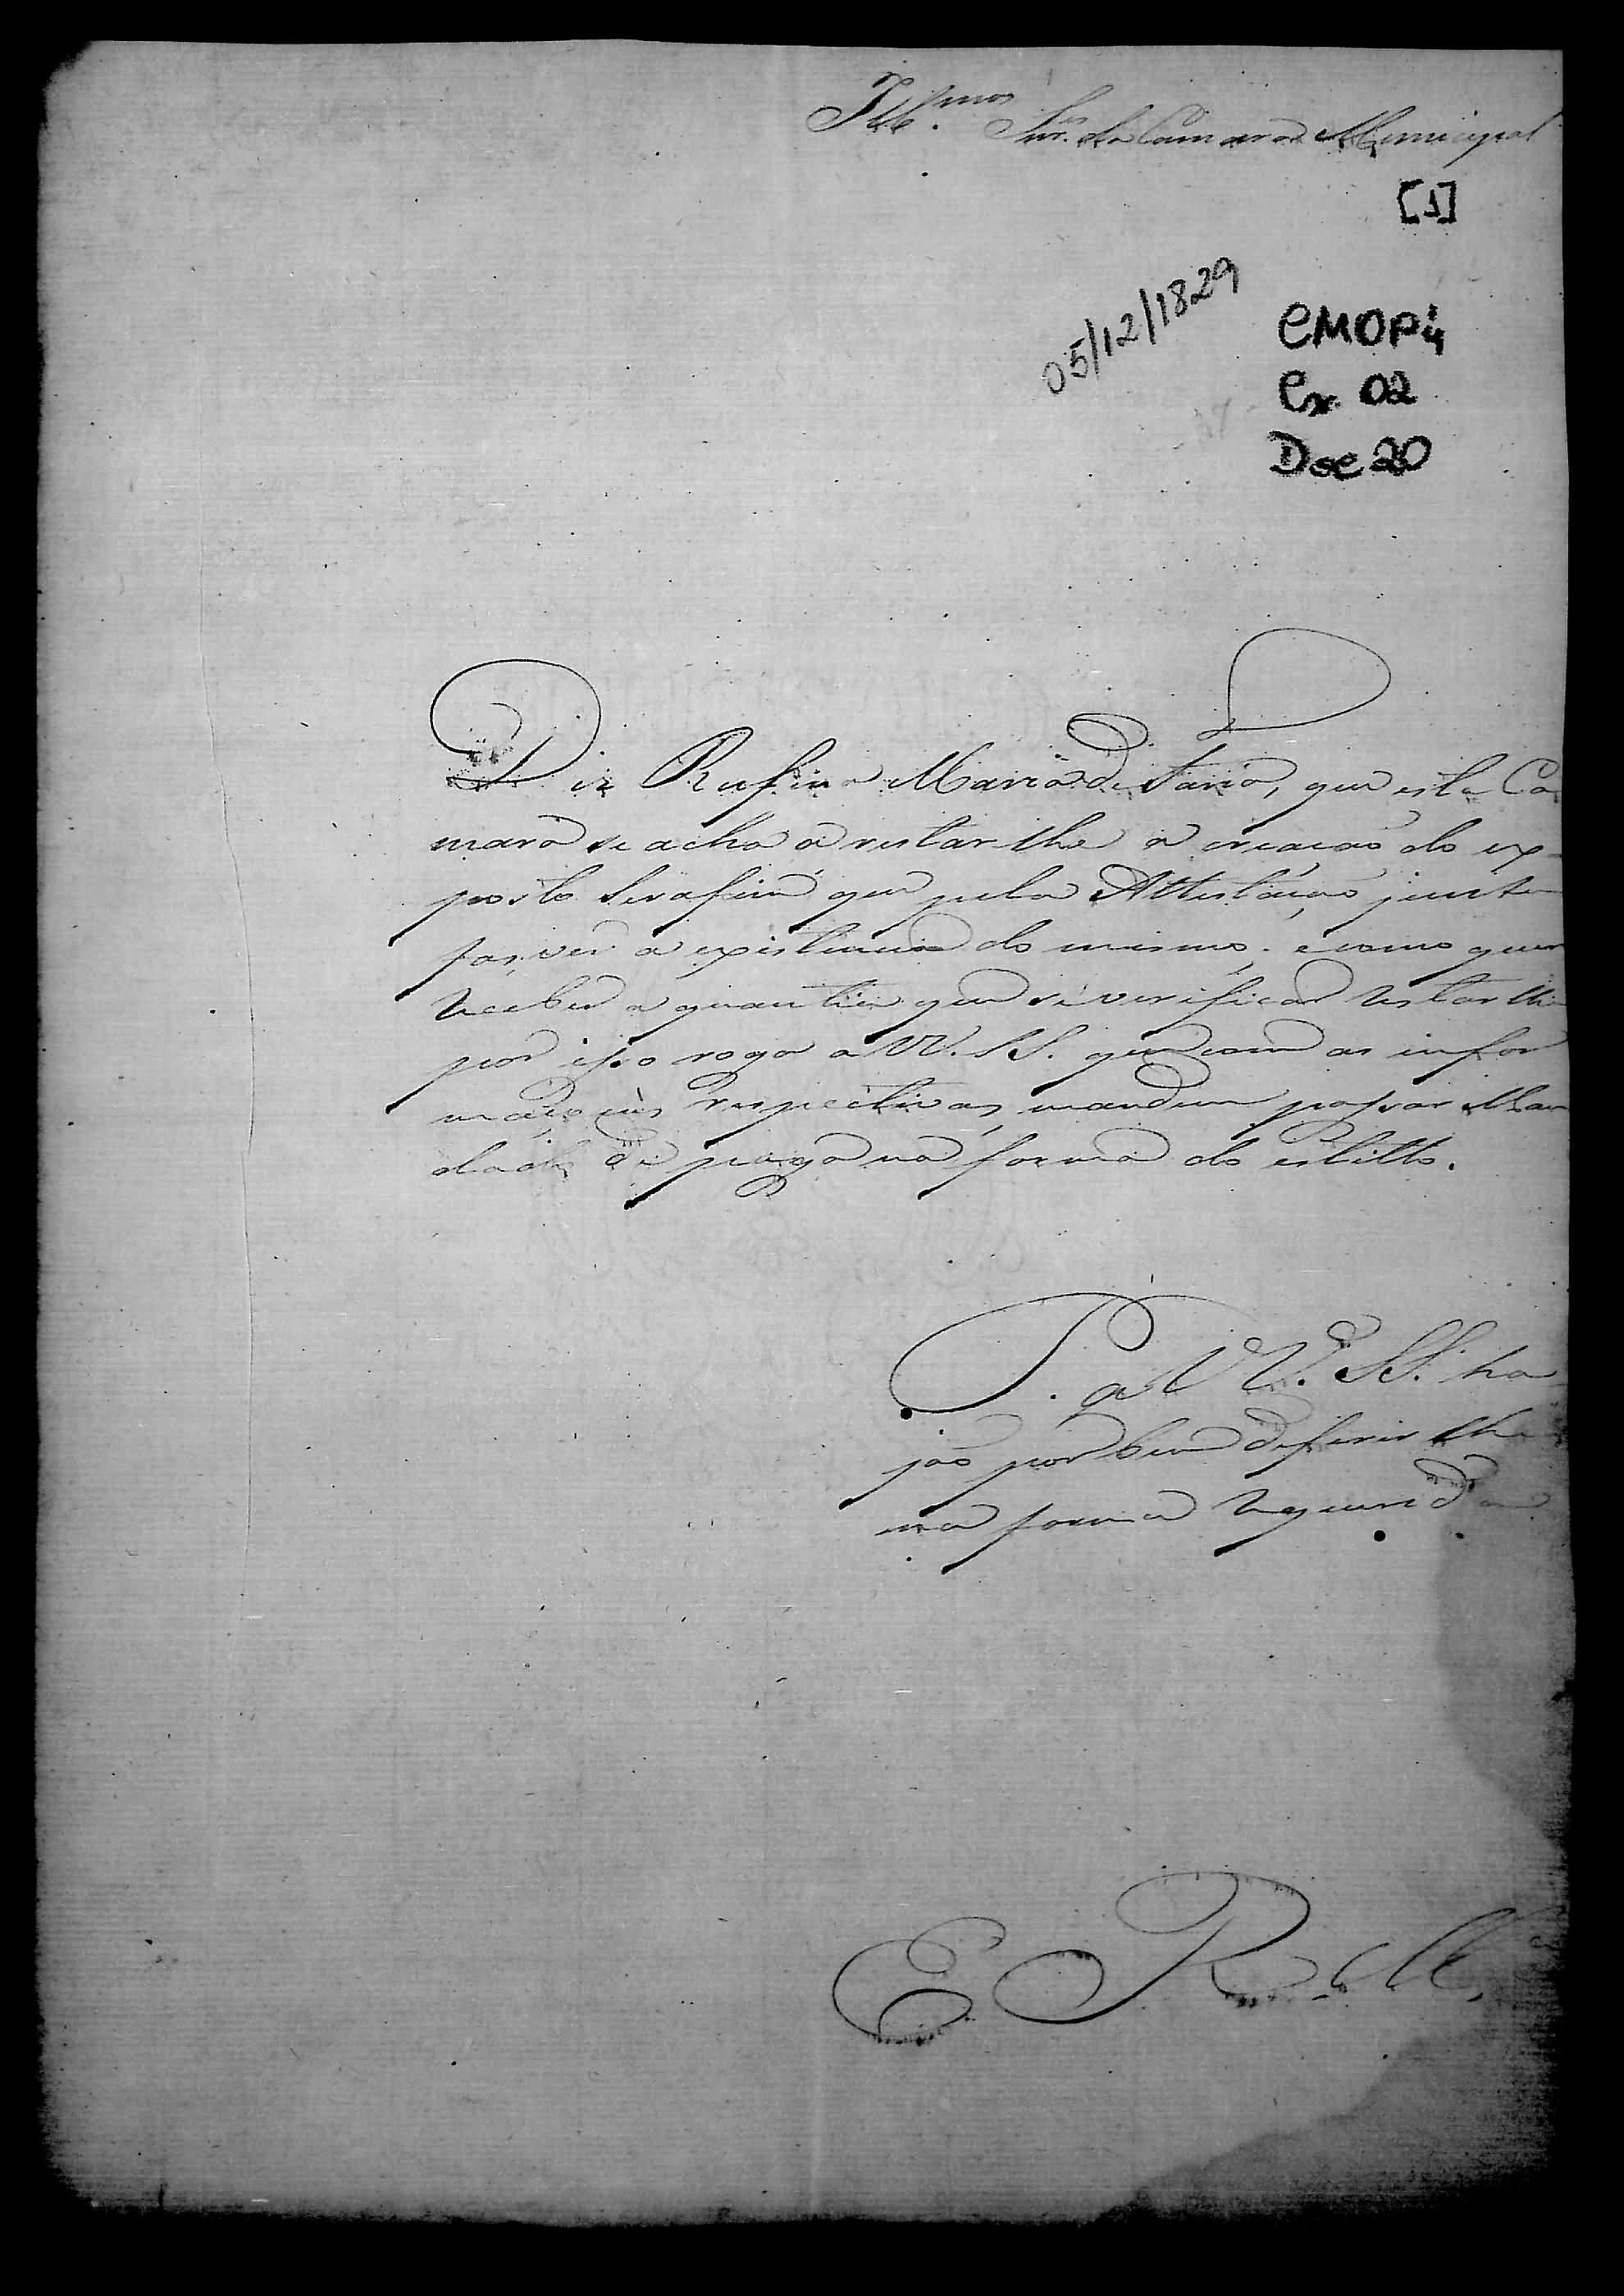 Ill.mos Snr.es da Camara Municipal
[1]
05/12/1829
CMOP
Cx. 02
Doc 20
Diz Rufina Maria de Faria, que esta Ca
mara se acha a restar lhe a creacaõ do ex
posto Serafim que pela Attestaçaõ junta
faz ver a existencia do mesmo, e como quer
receber a quantia que se verificar restar lhe
por isso roga a VV. SS. que com as infor
maçoens respectivas, mandem passar Man
dado de paga na forma do estillo.
P. a VV. SS. ha
jaõ por bem deferir lhe
na forma requerida
E R. M.